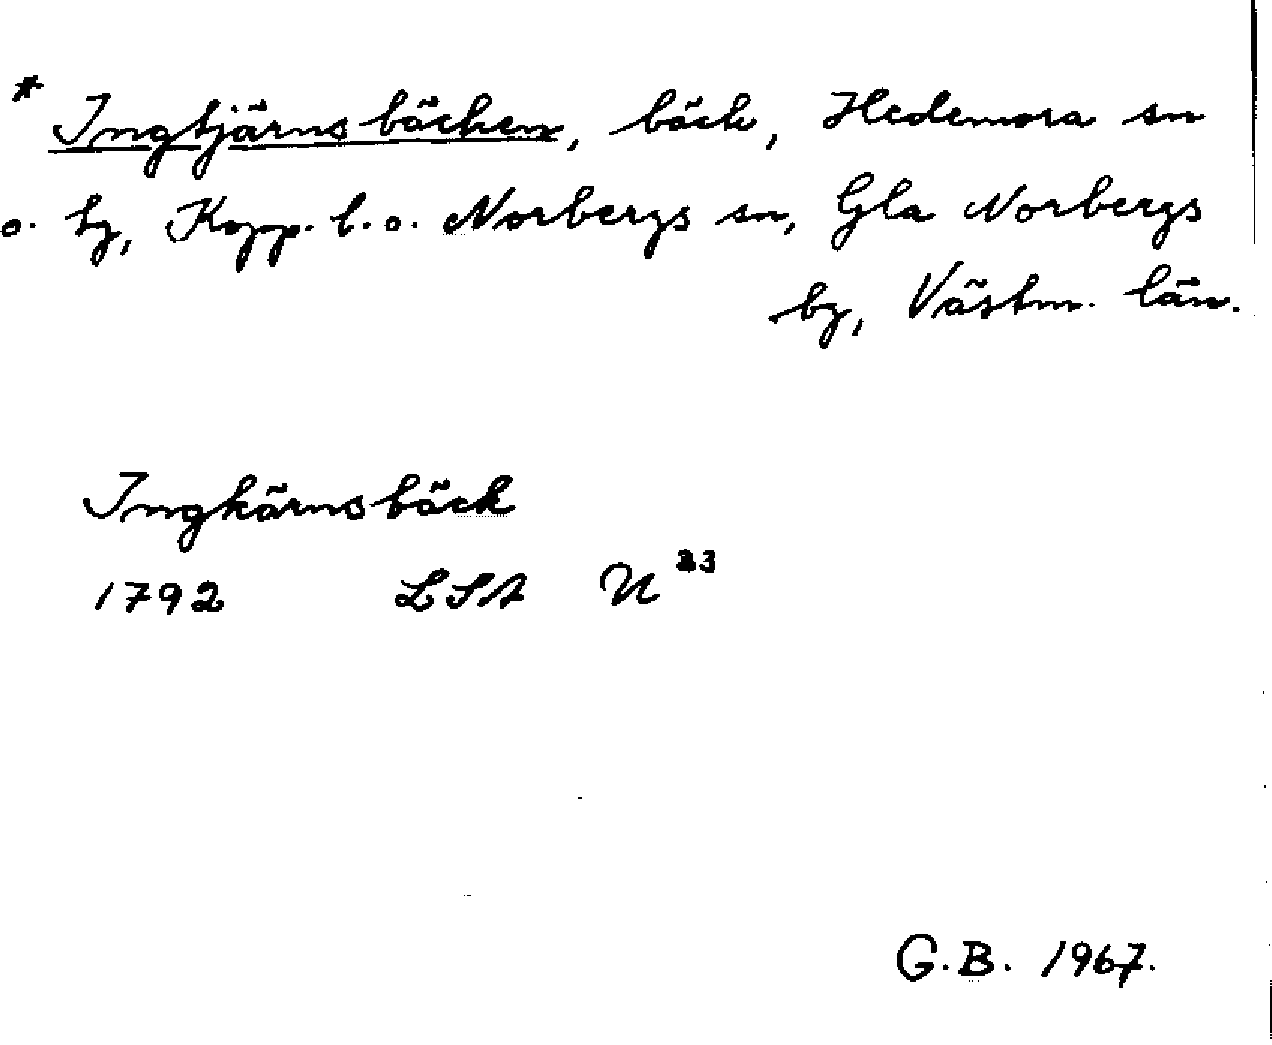 * Ingtjärnsbäcken, bäck, Hedemora sn
o. hg, Kopp. l. o. Norbergs sn, Gla Norbergs
bg, Västm. län.
Ingkärnsbäck
1792 LSA U 23
G.B. 1967.